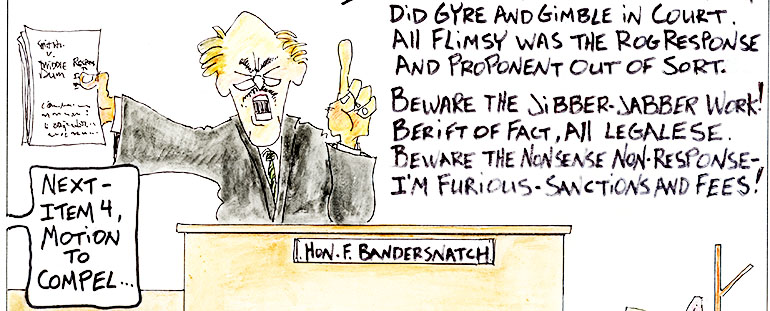 DID GYRE AND GIMBLE IN COURT.
All FLIMSY WAS THE ROG RESPONSE
AND PROPONENT OUT OF SORT.
BEWARE THE JIBBER-JABBER WORK!
BERIFT OF FACT, All LEGALESE.
BEWARE THE NONSENSE NON-RESPONSE-
I'M FURIOUS-SANCTIONS AND FEES!
V.
DUM
NEXT-
ITEM 4,
MOTION
TO
COMPEL...
HON. F. BANDERSNATCH